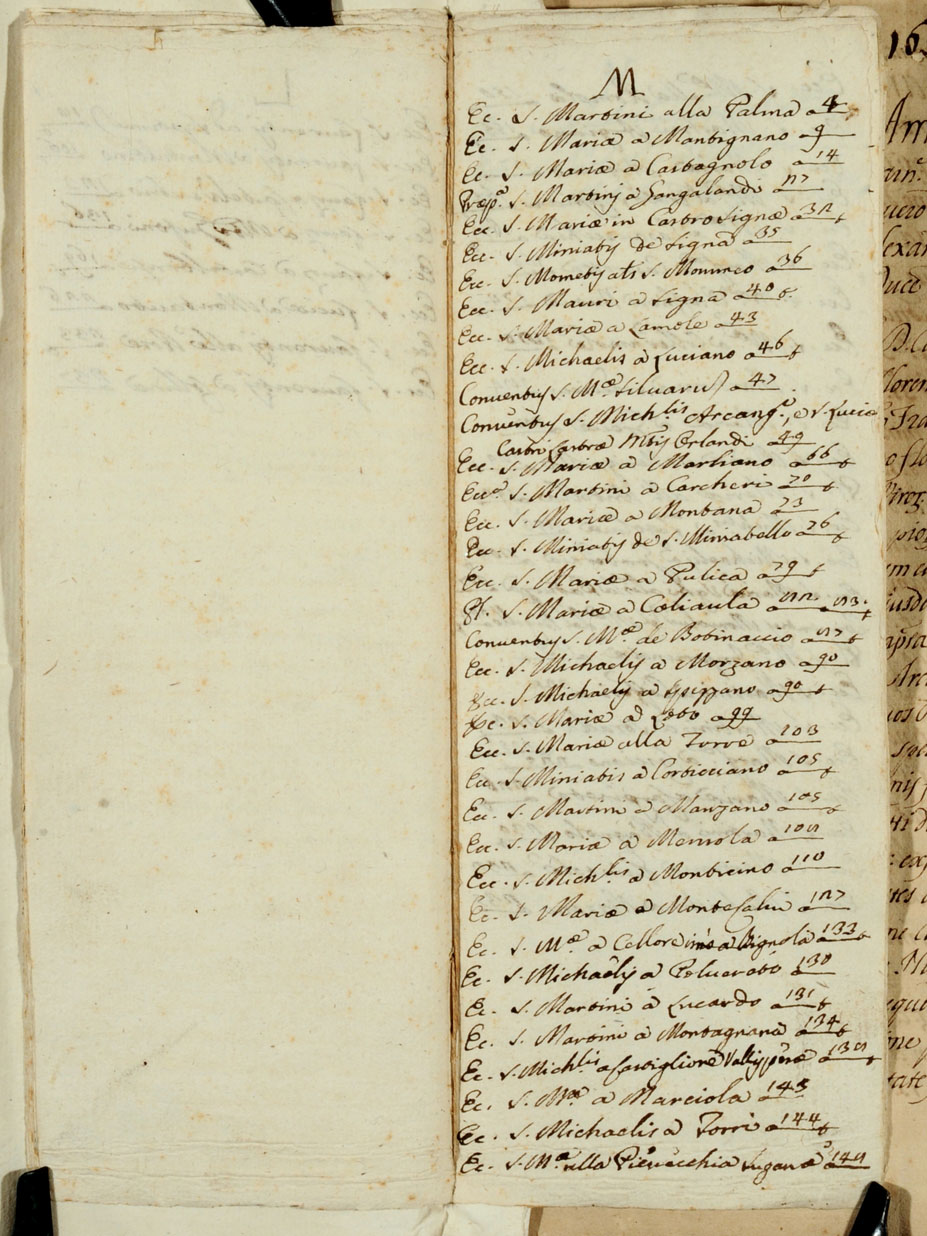 M
Ec. S. Martini alla Palma a 4
Ec. S. Mariæ a Mantignano a 9
Ec. S. Mariæ a Castagnolo a 14
Præp.ª S. Martinj a Gangalandi a 17
Ec. S. Mariæ in Castro Signæ a 32
Ecc. S. Miniatis de Signa a 35
Ecc. S. Mometis als S. Mommeo a 36
Ecc. S. Mauri a Signa a 40
Ecc. S. Mariæ a Lamole a 43
Ecc. S. Michaelis a Luciano a 46
Conventus S. Mæ Siluarū a 47
Conventus S. Michlis Arcang., e S. Lucia
Castri Lastræ Mtis Orlandi a 49
Ecc. S. Mariæ a Marliano a 66
Ecc. S. Martini a Carcheri a 70
Ecc. S. Mariæ a Montana a 73
Ecc. S. Miniatis de S. Miniatello a 76
Ecc. S. Mariæ a Pulica a 79
Pl. S. Mariæ a Cœliaula a 82 83
Conventus S. Mæ de Botinaccio a 87
Ecc. S. Michaelis a Morzano a 90
Ecc. S. Michaelis a 90
Ec. S. Mariæ a a 99
Ecc. S. Mariæ alla Torre a 103
Ec. S. Miniatis a Corticciano a 105
Ec. S. Martini a Manzano a 105
Ec. S. Mariæ a Mensola a 108
Ecc. S. Michlis a Monticino a 110
Ec. S. Mariæ a a 127
Ec. S. Mæ a Cellore a Vignola a 133
Ec. S. Michaelis a Poluereto a 130
Ec. S. Martini a Lucardo a 131
Ec. S. Martini a Montagnana a 134
Ec. S. Michlis a Castiglione Vallis a 138
Ec. S. Mæ a Marciola a 143
Ec. S. Michaelis a Torri a 144
Ec. S. Mæ alla Pieuecchia a 148